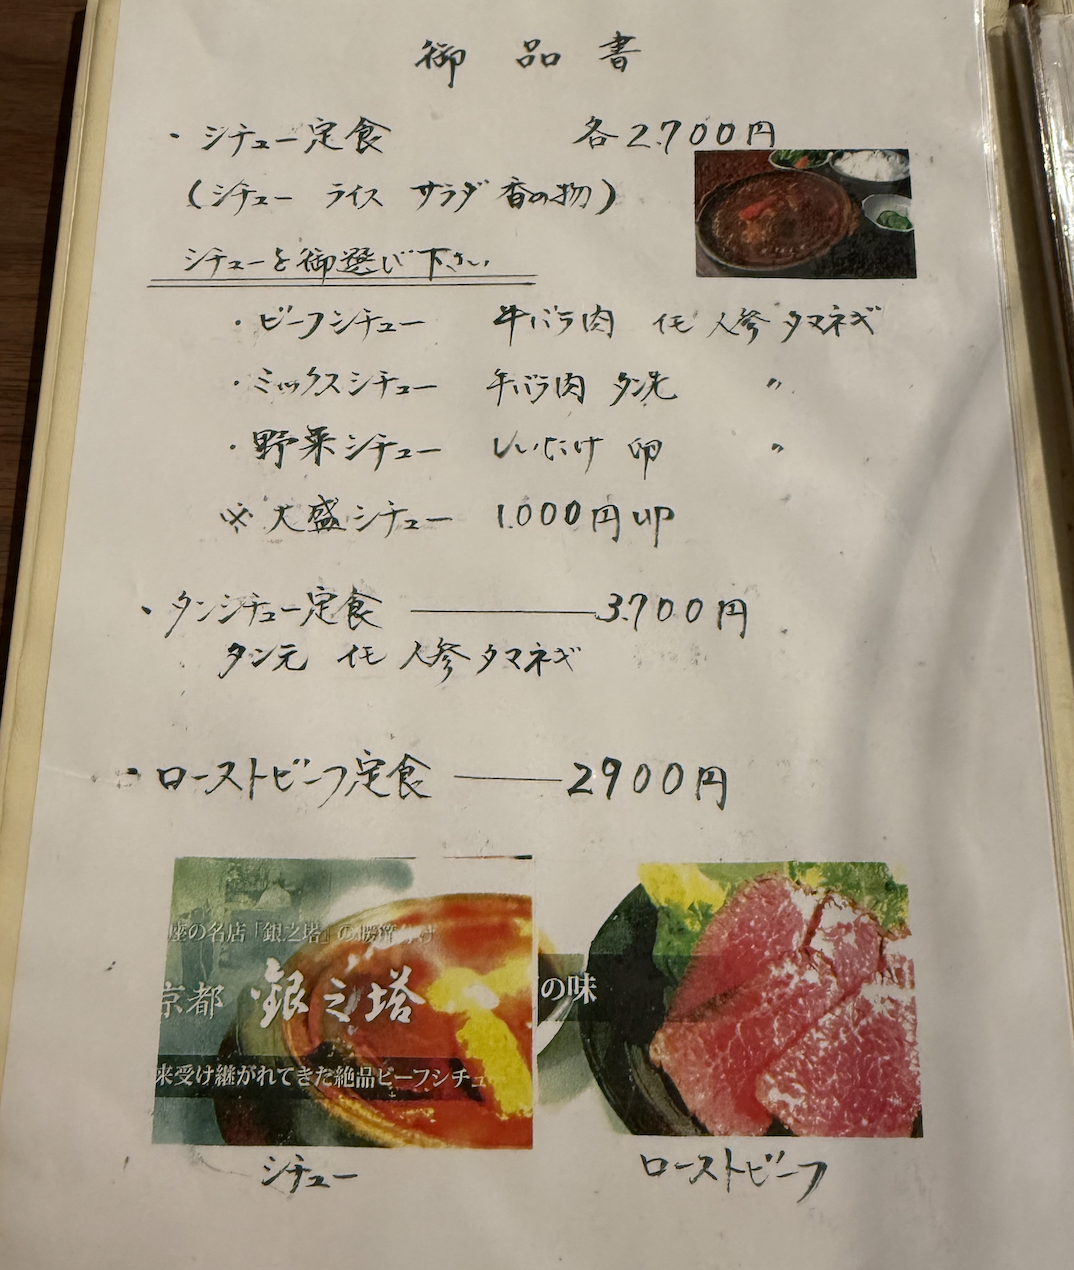 御品書
・シチュー定食 各2.700円
(シチュー ライス サラダ 香の物)
シチューを御選び下さい
・ビーフシチュー 牛バラ肉 イモ 人参 タマネギ
・ミックスシチュー 牛バラ肉 タン元 〃
・野菜シチュー しいたけ 卵 〃
※大盛シチュー 1.000円up
・タンシチュー定食 ——— 3.700円
タン元 イモ 人参 タマネギ
・ローストビーフ定食 ——— 2900円
座の名店「銀之塔」の
京都 銀之塔
来受け継がれてきた絶品ビーフシチュー
の味
シチュー
ローストビーフ